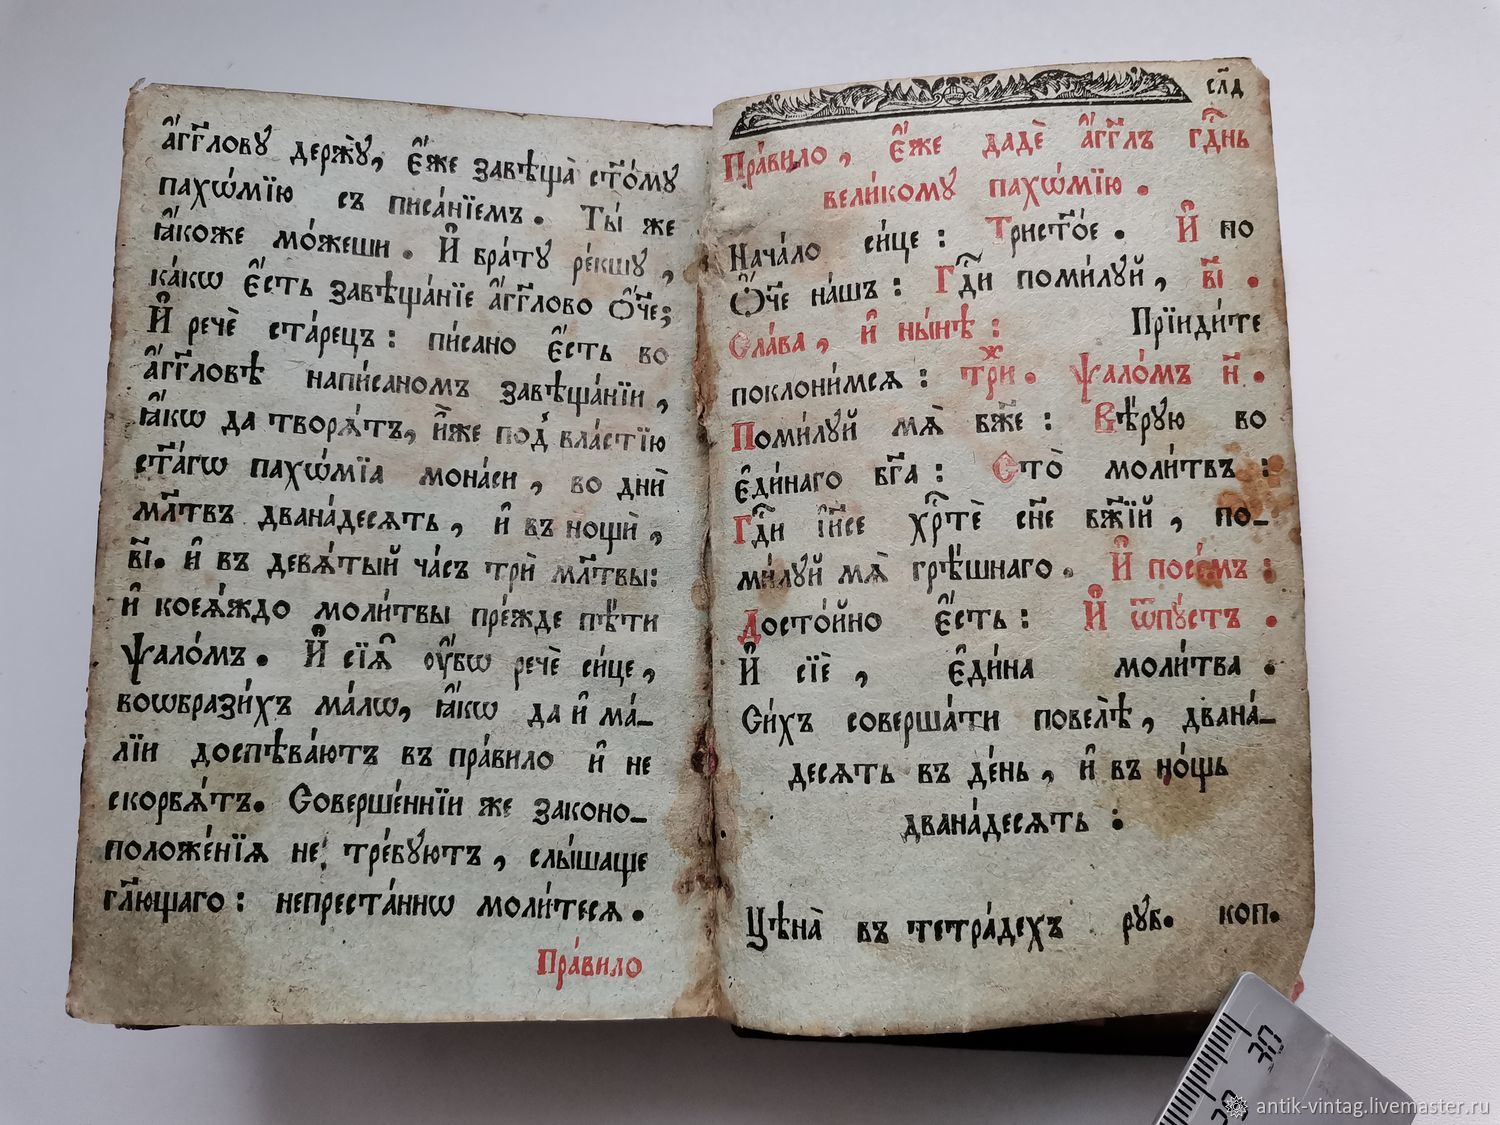 а҆́гг҃лову держꙋ̀, є҆́же завѣща̀ ст҃о́мꙋ
пахѡ́мїю съ писа́нїемъ. Ты́ же
ꙗ҆́коже мо́жеши. И҆ бра́тꙋ ре́кшꙋ,
ка́кѡ є҆́сть завѣща́нїе а҆́гг҃лово ѻ҆́ч҃е;
И҆ речѐ ста́рецъ: пи́сано є҆́сть во
а҆́гг҃ловѣ напи́саномъ завѣща́нїи,
ꙗ҆́кѡ да творѧ́тъ, и҆̀же под̾ вла́стїю
ст҃а́гѡ пахѡ́мїа мона́си, во дни̑
мл҃твъ двана́десѧть, и҆ въ нощѝ,
в҃і. и҆ въ девѧ́тый ча́съ трѝ мл҃твы:
и҆ коеѧ́ждо моли́твы пре́жде пѣ́ти
ѱало́мъ. И҆ сїѧ̑ оу҆́бѡ речѐ си́це,
воѡбрази́хъ ма́лѡ, ꙗ҆́кѡ да и҆ ма́-
лїи доспѣва́ютъ въ пра́вило и҆ не
скорбѧ́тъ. Соверше́ннїи же законо-
положе́нїѧ не тре́бꙋютъ, слы́шаще
гл҃ющаго: непреста́ннѡ моли́тесѧ.
Пра́вило
сл҃д
Пра́вило, є҆́же дадѐ а҆́гг҃лъ гд҃нь
вели́комꙋ пахѡ́мїю.
Нача́ло си́це: Трист҃о́е. И҆ по
Ѻ҆́ч҃е на́шъ: Гд҃и поми́лꙋй, в҃і.
Сла́ва, и҆ ны́нѣ: Прїиди́те
поклони́мсѧ: три́ж. Ѱало́мъ н҃.
Поми́лꙋй мѧ̀ бж҃е: Вѣ́рꙋю во
є҆ди́наго бг҃а: Сто̀ моли́твъ:
Гд҃и і҆и҃се хр҃тѐ сн҃е бж҃їй, по-
ми́лꙋй мѧ̀ грѣ́шнаго. И҆ посе́мъ:
Досто́йно є҆́сть: И҆ ѿпꙋ́стъ.
И҆ сїѐ, є҆ди́на моли́тва.
Си́хъ соверша́ти повелѣ̀, двана́-
десѧть въ де́нь, и҆ въ но́щь
двана́десѧть:
Цѣна̀ въ тетра́дехъ рꙋб. коп.
30
29
antik-vintag.livemaster.ru